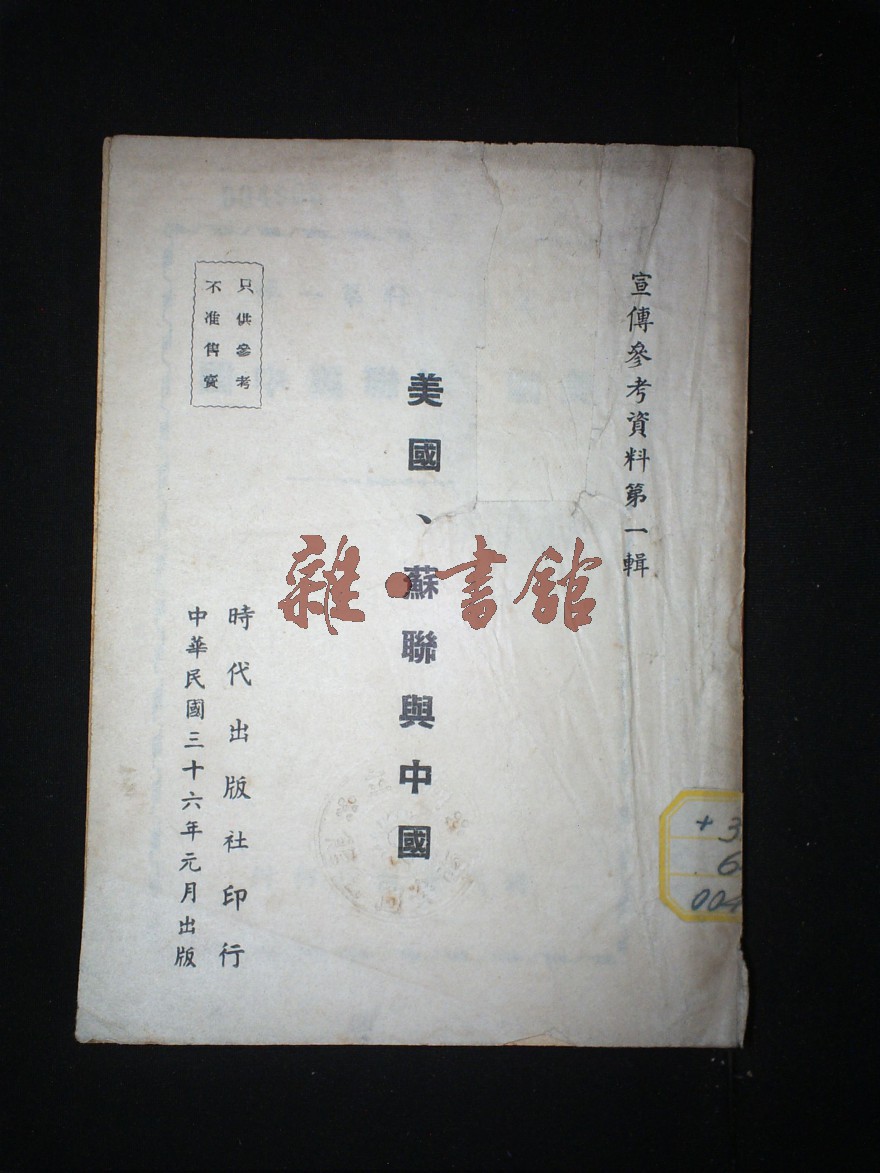 宣傳參考資料第一輯
美國、蘇聯與中國
只供參考
不准售賣
時代出版社印行
中華民國三十六年元月出版
雜·書館
+3
6
004